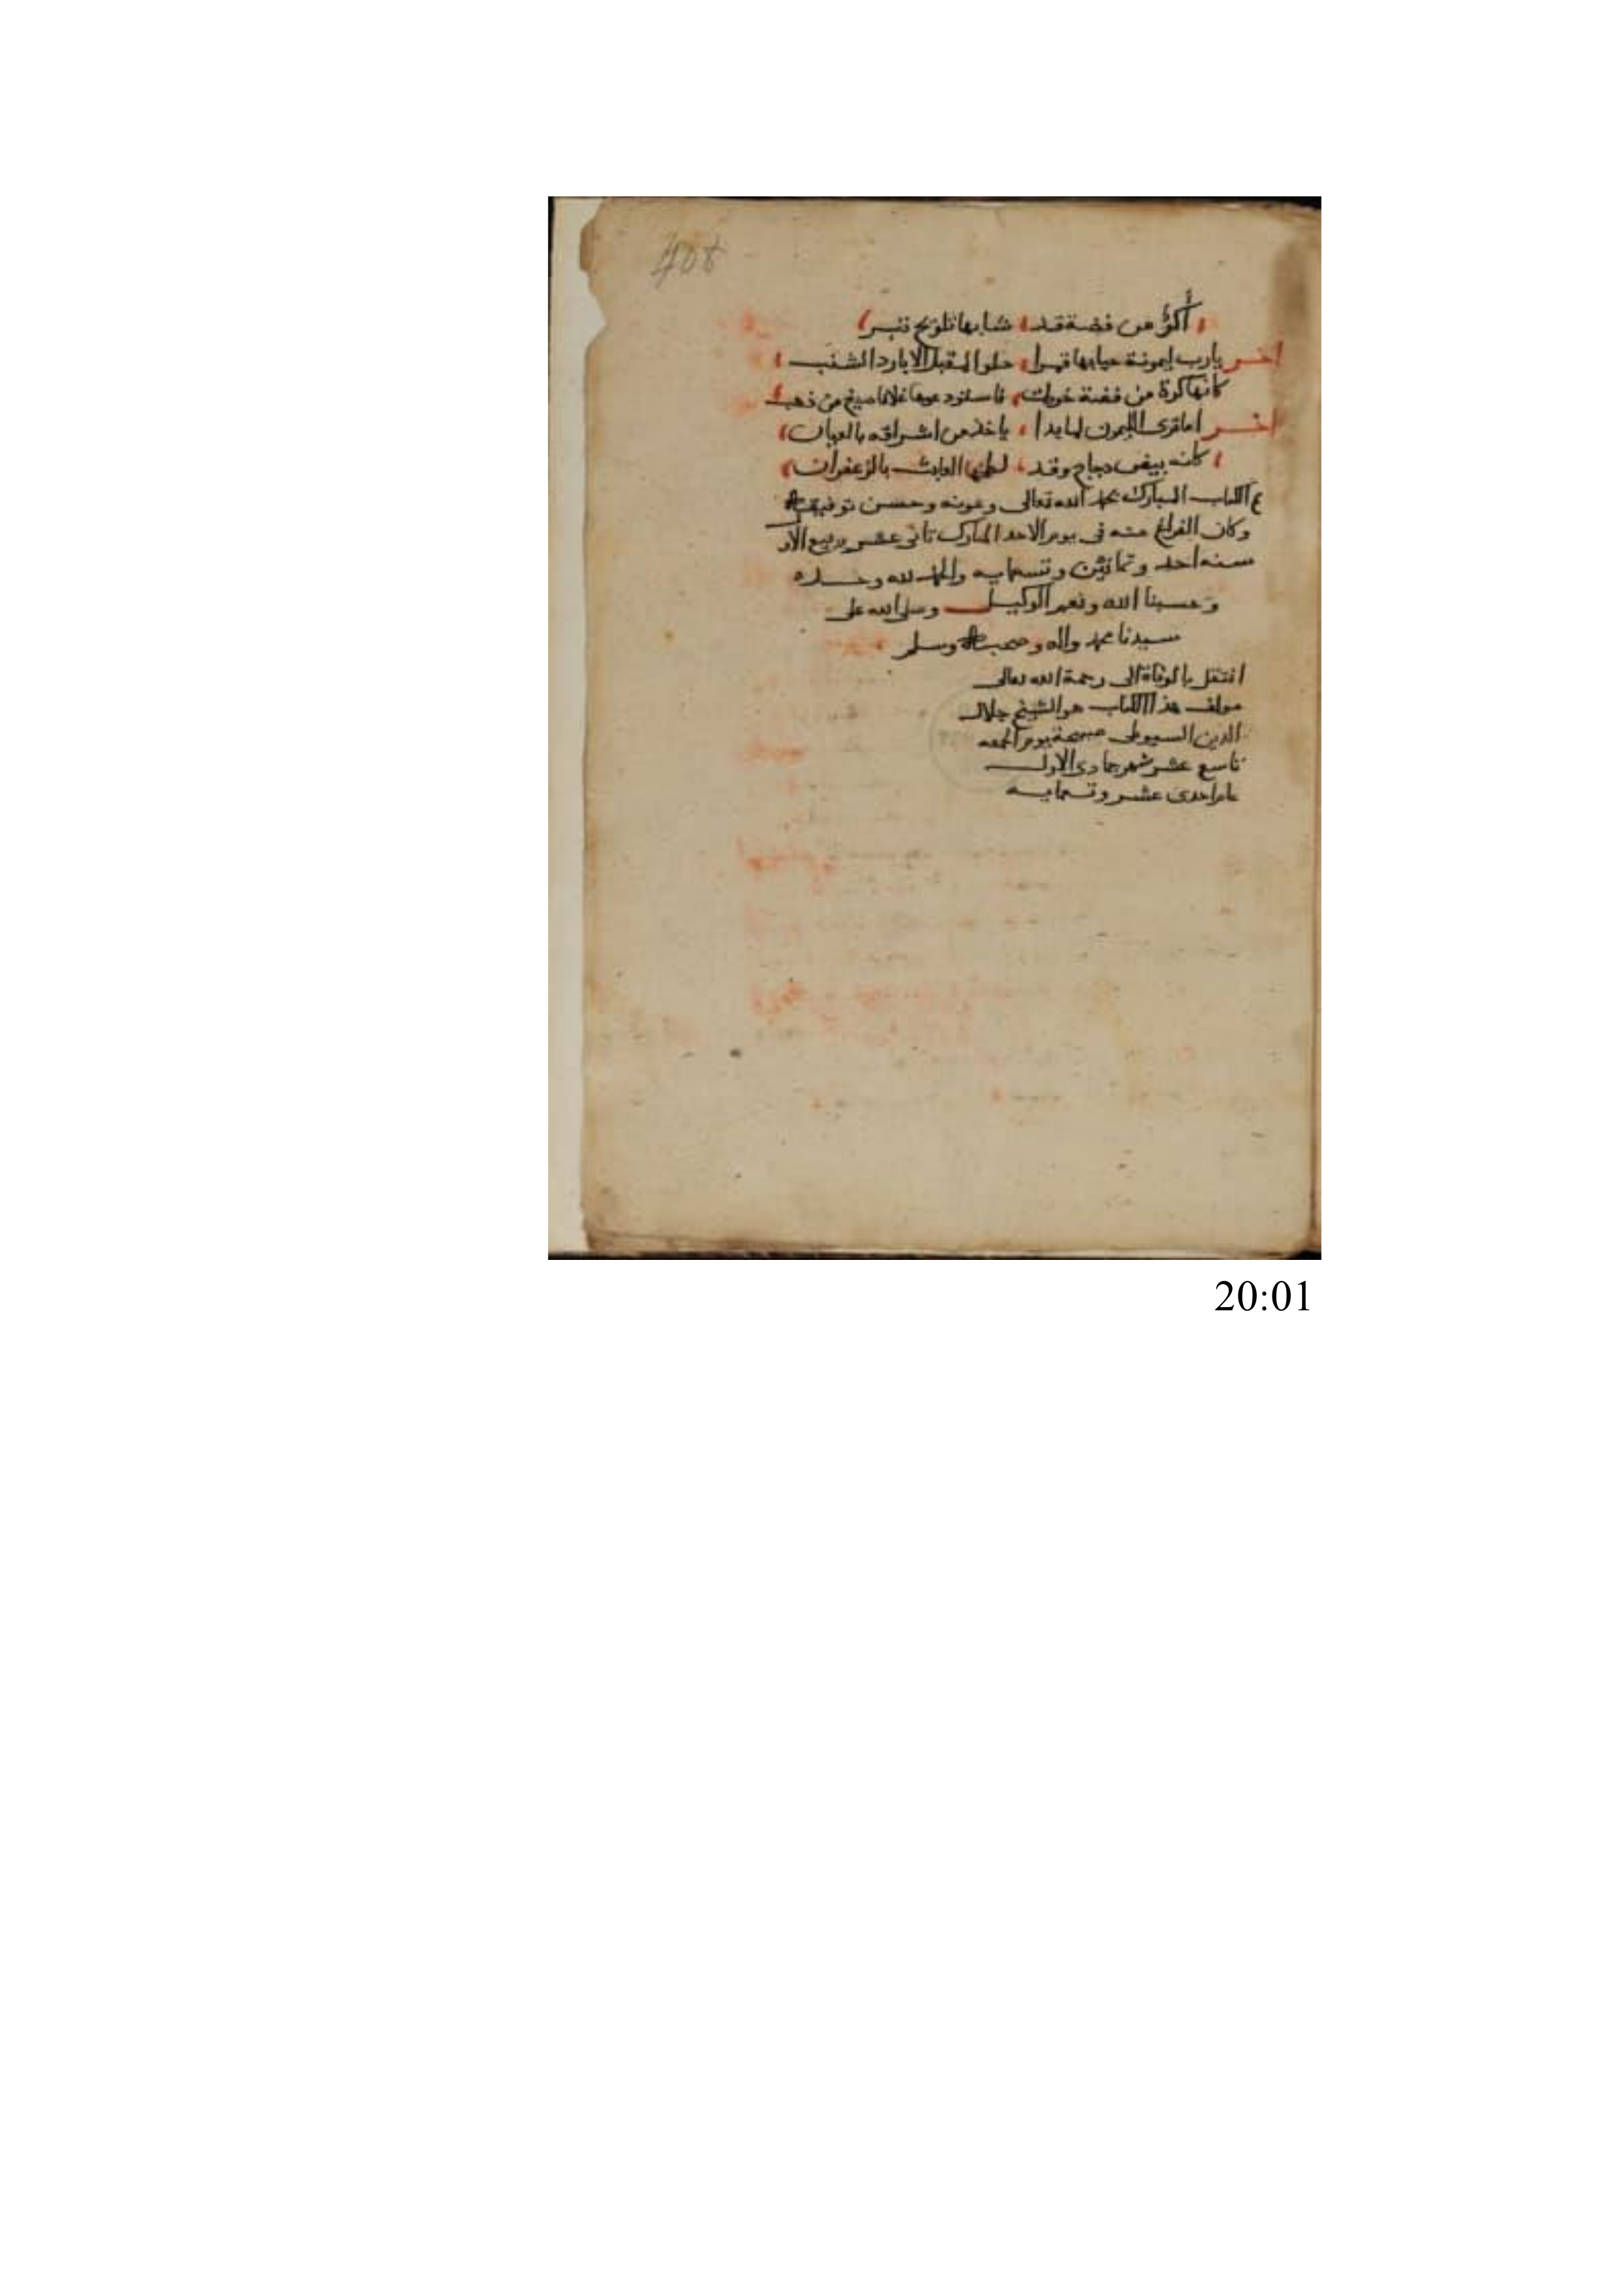 408
أكؤ من فضة قد شابها تلويح تبر
اخر يارب ليمونة حيا بها قمرا حلو المقبل الا بارد الشنب
كانها كرة من فضة خرطت فاستودعوها غلافا صيغ من ذهب
اخر اما ترى الليمون لما بدا ياخذ من اشراقه بالعيان
كانه بيض دجاج وقد لطخها العابث بالزعفران
الكتاب المبارك بحمد الله تعالى وعونه وحسن توفيقه
وكان الفراغ منه في يوم الاحد المبارك ثاني عشر ربيع الاو
سنه احد وثمانين وتسعمايه والحمد لله وحده
وحسبنا الله ونعم الوكيل وصلى الله على
سيدنا محمد واله وصحبه وسلم
انتقل بالوفاة الى رحمة الله تعالى
مولف هذا الكتاب هو الشيخ جلال
الدين السيوطى صبيحة يوم الجمعه
تاسع عشر شهر جمادى الاول
عام احدى عشر وتسمايه
20:01